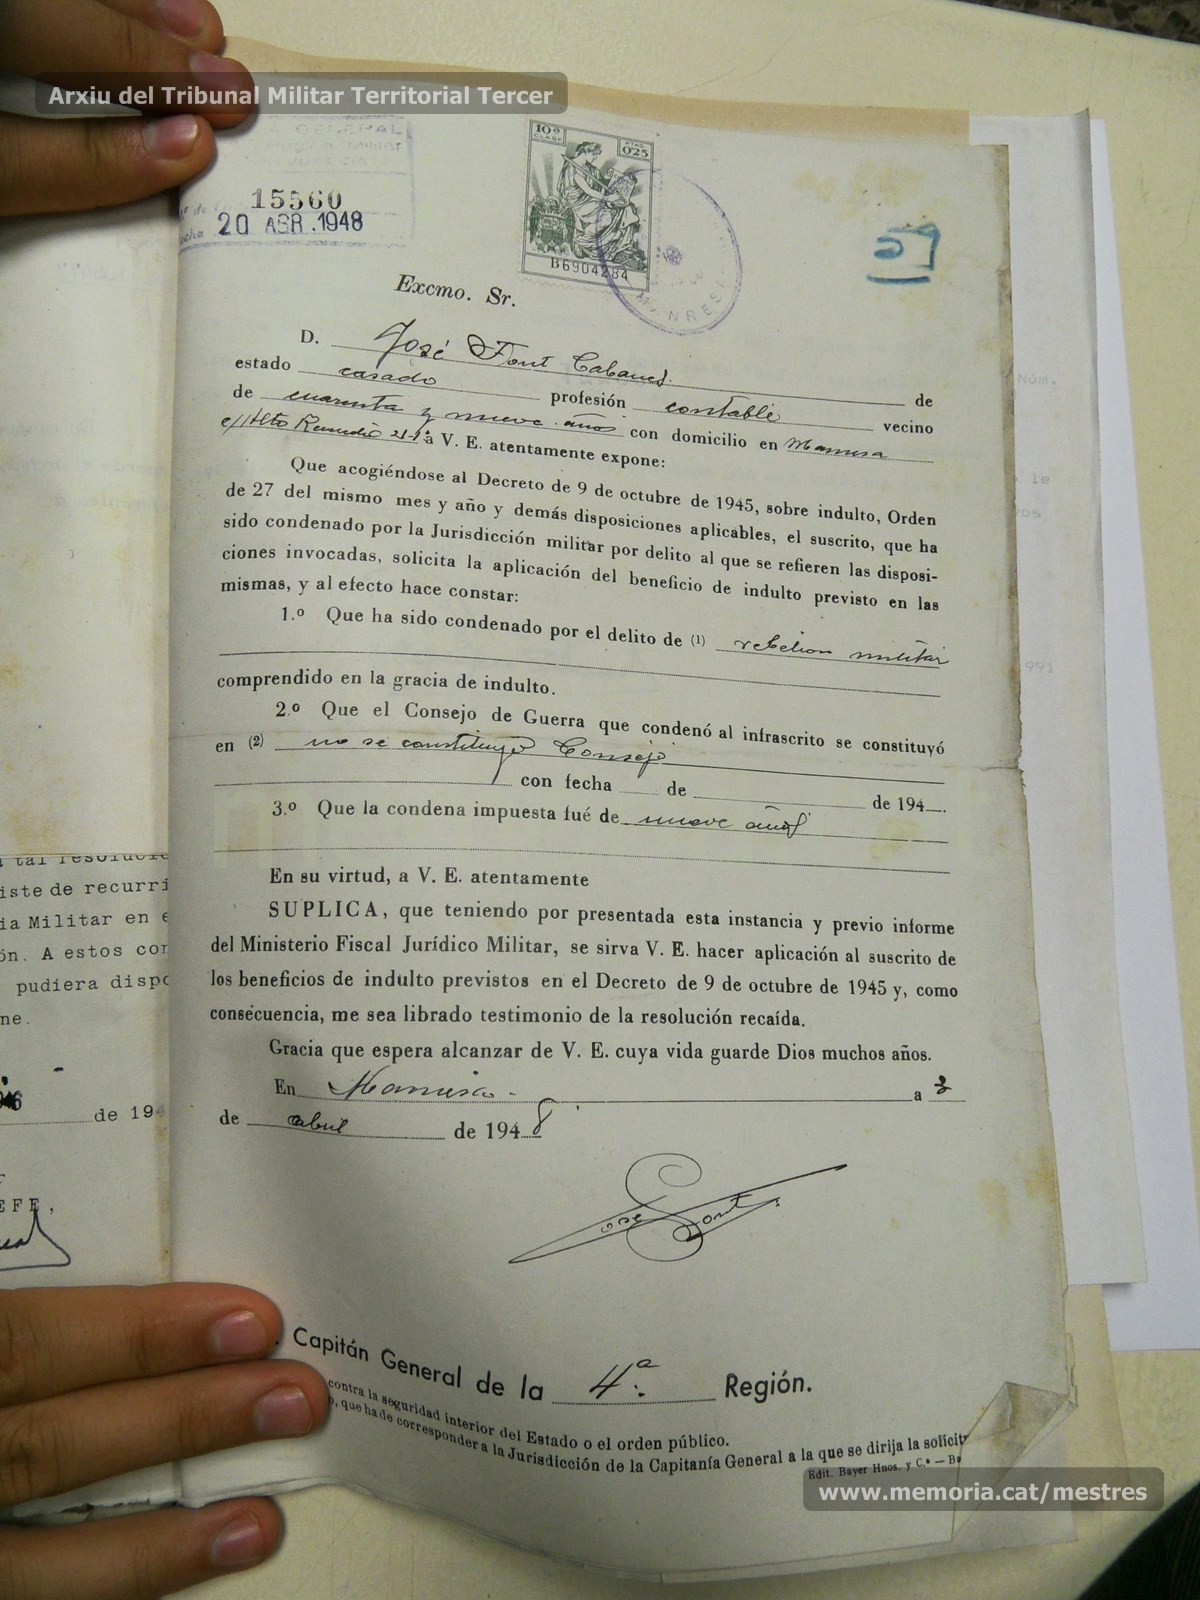 Arxiu del Tribunal Militar Territorial Tercer
15560
20 ABR. 1948
10ª CLASE
PTAS. 0'25
B6904284
MANRESA
Excmo. Sr.
D. José Font Cabanes de
estado casado profesión contable vecino
de cuarenta y nueve años con domicilio en Manresa
c/ Alto Remedio 21-1º a V. E. atentamente expone:
Que acogiéndose al Decreto de 9 de octubre de 1945, sobre indulto, Orden
de 27 del mismo mes y año y demás disposiciones aplicables, el suscrito, que ha
sido condenado por la Jurisdicción militar por delito al que se refieren las disposi-
ciones invocadas, solicita la aplicación del beneficio de indulto previsto en las
mismas, y al efecto hace constar:
1.º Que ha sido condenado por el delito de (1) rebelion militar
comprendido en la gracia de indulto.
2.º Que el Consejo de Guerra que condenó al infrascrito se constituyó
en (2) no se constituyó Consejo
con fecha de de 194 .
3.º Que la condena impuesta fué de nueve años
En su virtud, a V. E. atentamente
SUPLICA, que teniendo por presentada esta instancia y previo informe
del Ministerio Fiscal Jurídico Militar, se sirva V. E. hacer aplicación al suscrito de
los beneficios de indulto previstos en el Decreto de 9 de octubre de 1945 y, como
consecuencia, me sea librado testimonio de la resolución recaída.
Gracia que espera alcanzar de V. E. cuya vida guarde Dios muchos años.
En Manresa a
de abril de 1948
Jose Font
. Capitán General de la 4ª. Región.
contra la seguridad interior del Estado o el orden público.
o, que ha de corresponder a la Jurisdicción de la Capitanía General a la que se dirija la solicit
Edit. Bayer Hnos. y C.ª — Ba
www.memoria.cat/mestres
a tal resolució
iste de recurri
ia Militar en e
ón. A estos con
pudiera dispo
ne.
de 194
EFE,
Núm.
le
991